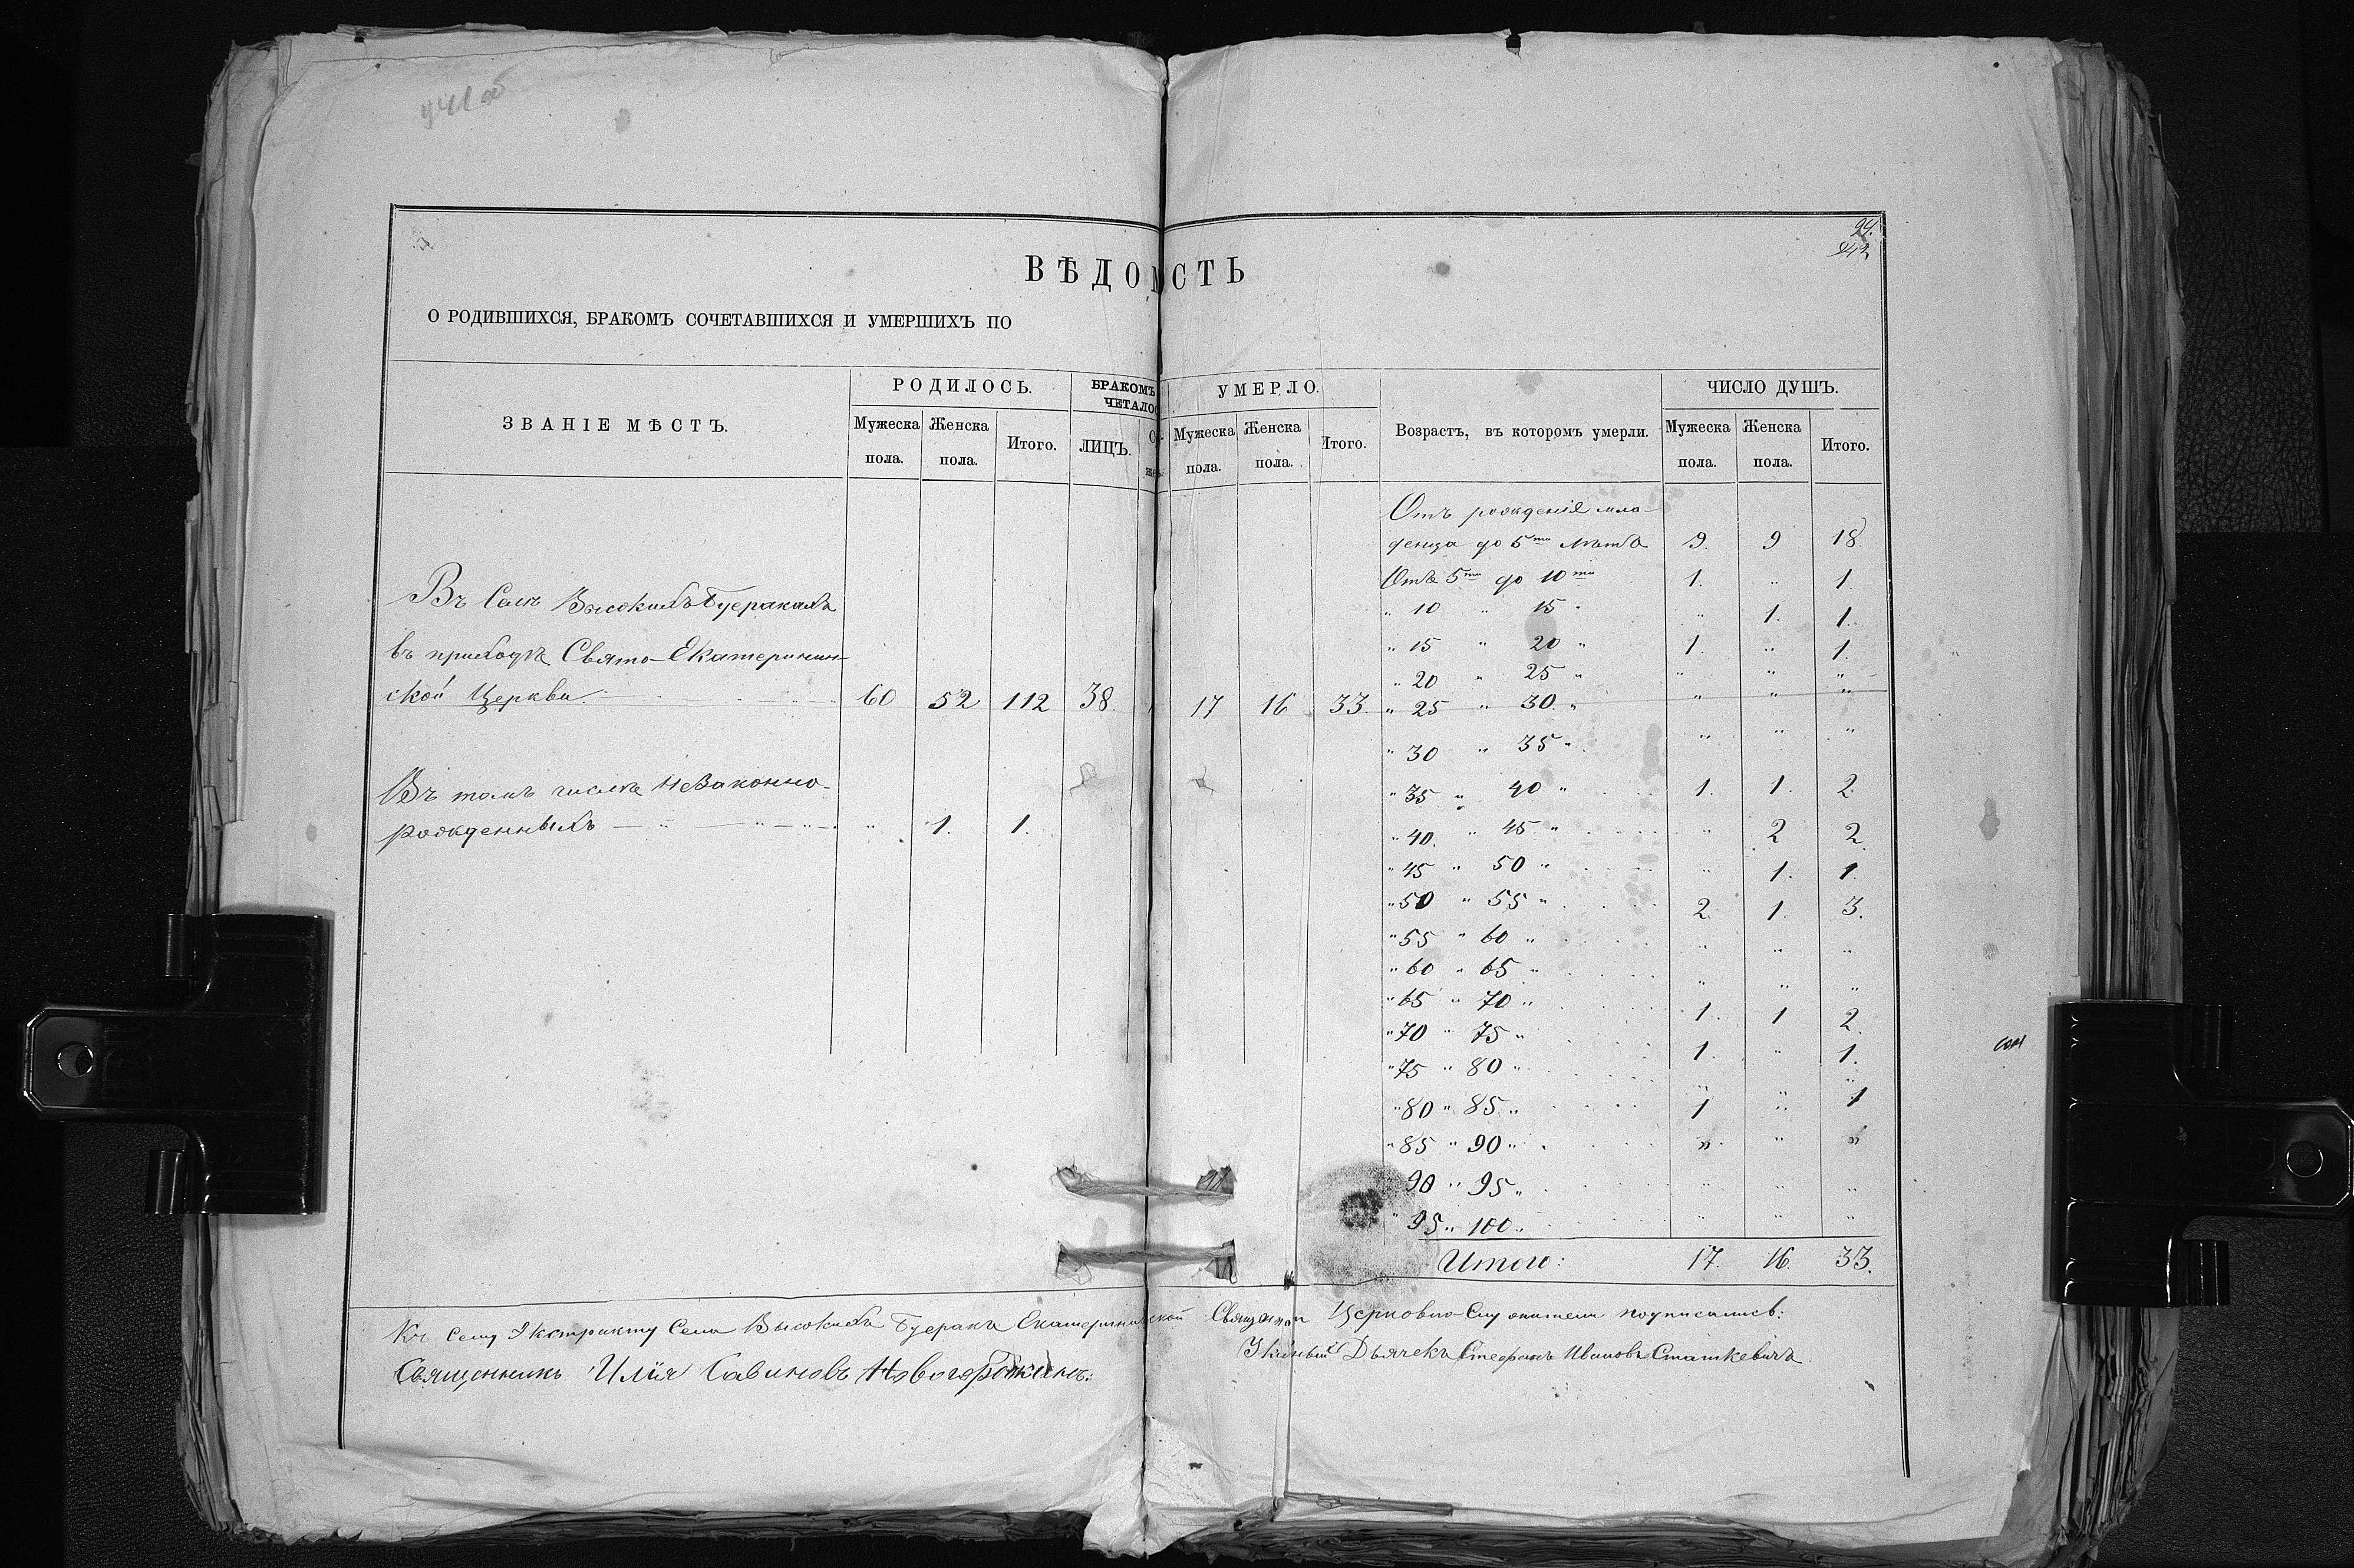 94.
942
ВѢДОМОСТЬ
О РОДИВШИХСЯ, БРАКОМЪ СОЧЕТАВШИХСЯ И УМЕРШИХЪ ПО
ЗВАНІЕ МѢСТЪ.
РОДИЛОСЬ.
Мужеска пола.
Женска пола.
Итого.
БРАКОМЪ
ЧЕТАЛО
ЛИЦЪ.
УМЕРЛО.
Мужеска пола.
Женска пола.
Итого.
Возрастъ, въ которомъ умерли.
ЧИСЛО ДУШЪ.
Мужеска пола.
Женска пола.
Итого.
Въ Селѣ Высокихъ Буеракахъ
въ приходѣ Свято-Екатеринин-
ской Церкви. 60 52 112 38 17 16 33.
Въ томъ числѣ незаконно-
рожденныхъ — " — " — " — " 1. 1.
Отъ рожденія мла-
денца до 5ти лѣтъ 9. 9 18.
Отъ 5ти до 10ти 1. " 1.
" 10 " 15 " " 1. 1.
" 15 " 20 " 1. " 1.
" 20 " 25 " " " "
" 25 " 30. " " " "
" 30 " 35 " " " "
" 35 " 40 " 1. 1. 2.
" 40. " 45 " " 2 2.
" 45 " 50 " " 1. 1.
" 50 " 55 " 2. 1. 3.
" 55 " 60 " " " "
" 60 " 65 " " " "
" 65 " 70 " 1. 1 2.
" 70 " 75 " 1. " 1.
" 75 " 80 " " " "
" 80 " 85 " 1 " 1
" 85 " 90 " " " "
90 " 95 " " " "
" 95 " 100 " " " "
Итого: 17. 16. 33.
Къ сему Экстракту Села Высокихъ Буеракъ Екатерининской Священно Церковно-Служители подписались:
Священникъ Илія Савиновъ
Дьячекъ Стефанъ Ивановъ Статкевичъ